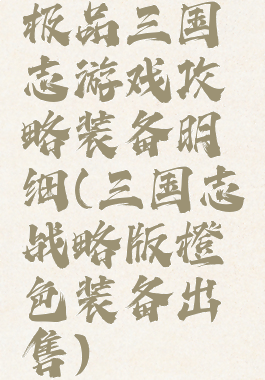 极品三国
志游戏攻
略装备明
细(三国志
战略版橙
色装备出
售)